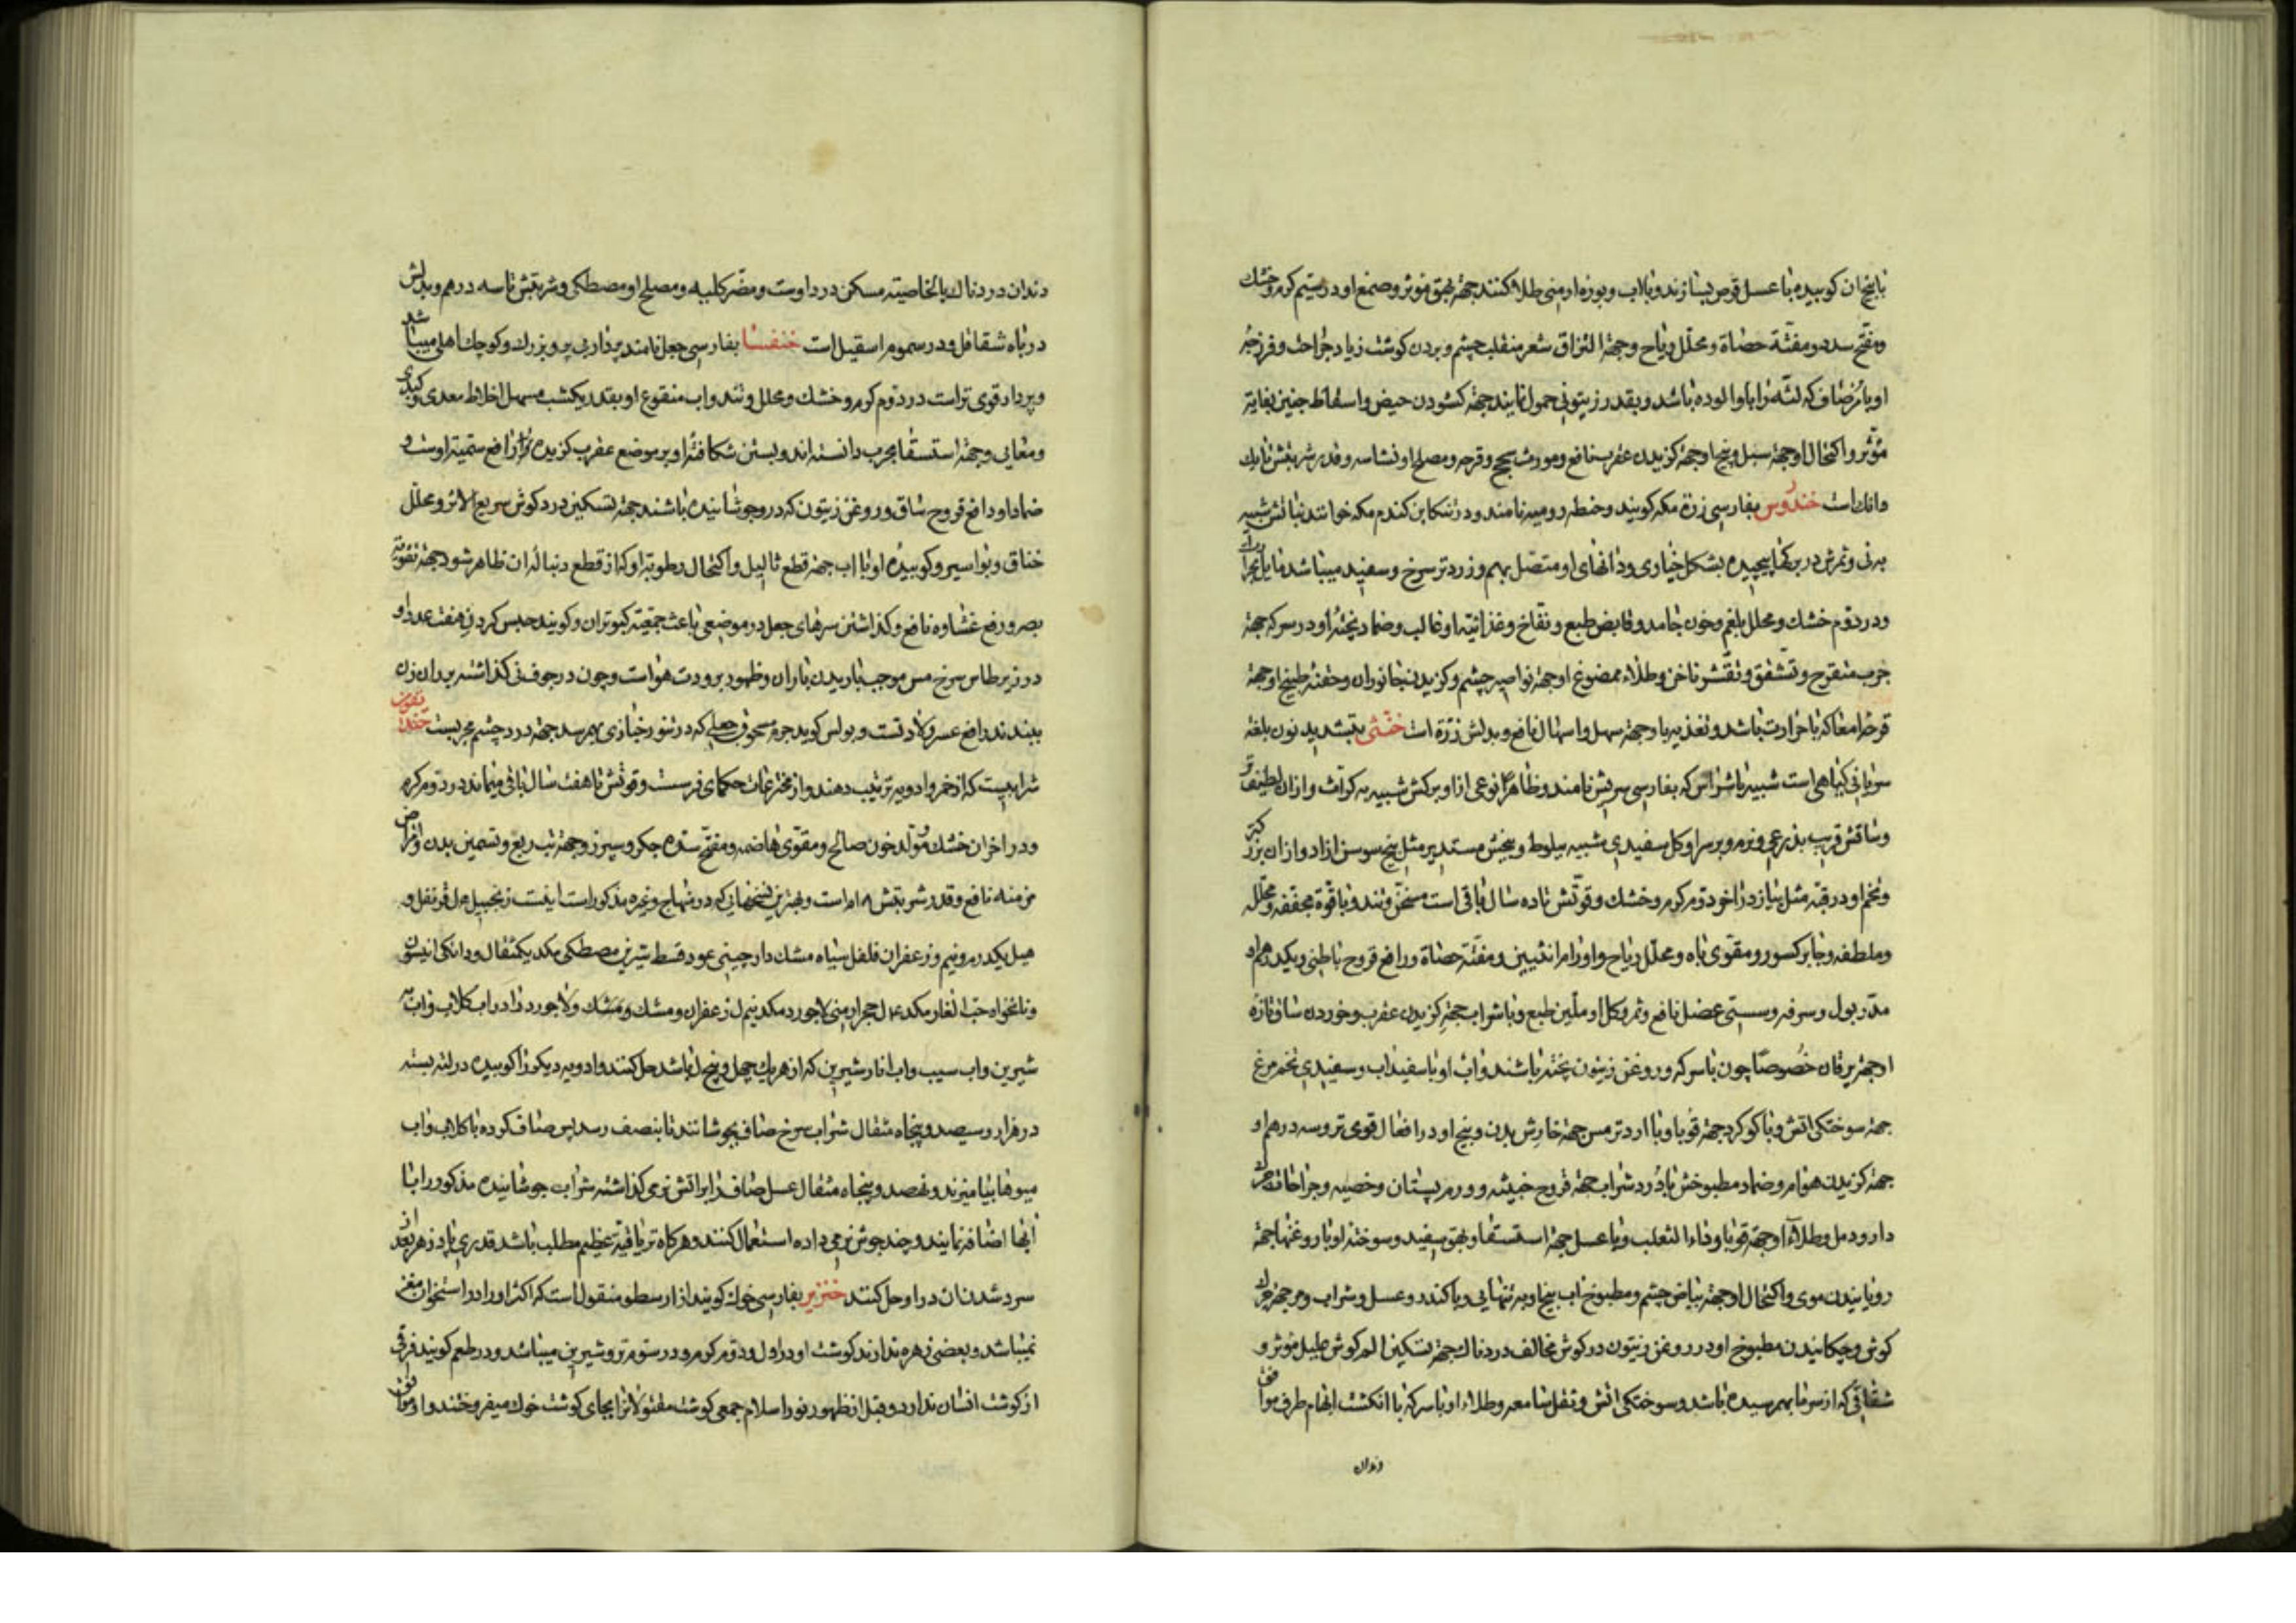 با بیخ ان کوبیده با عسل قرص بسازند و بالاب و بوره ارمنی طلا کنند جهة بهق موثر و صمغ او در سیم کرم و خشک
و مفتح سدد و مفتّة حصاة و محلل ریاح و جهة التزاق شعر منقلب چشم و بردن کوشت زیاد جراحت و فرزجهٔ
او با مُر صاف که لته را باو الوده باشد و بقدر زیتونی حمول نمایند جهة کشودن حیض و اسقاط جنین بغایة
مؤثر و اکتحال او جهة سبل و بیخ او جهة کزیدن عقرب نافع و مورث سحج و قرحه و مصلح او نشاسه و قدر شربتش تا یک
دانک است خندروس بفارسی ذرة مکه کویند و حنطه رومیه نامند و در تنکابن کندم مکه خوانند نباتش شبیه
به نی و ثمرش در برکها پیچیده بشکل خیاری و دانهای او متصل بهم و زرد تر سرخ و سفید میباشد مایل بحرارت
و در دوم خشک و محلل بلغم و خون جامد و قابض طبع و نفّاخ و غذائیة او غالب و ضماد پختهٔ او در سرکه جهة
جرب متقرح و تشقق و تقشر ناخن و طلاء ممضوغ او جهة نواصیر چشم و کزیدن جانوران و حقنه طبیخ او جهة
قرحه امعا که با حرارت باشد و تغذیه با و جهة سهل و اسهال نافع و بدلش ذرة است خنثی بتشدید نون بلغة
سریانی کیاهی است شبیه باشراس که بفارسی سریش نامند و ظاهرا نوعی ازاو برکش شبیه به کرّاث و ازان لطیف تر
و ساقش قریب بذرعی و نرم و بر سر او کل سفیدی شبیه ببلوط و بیخش مستدیر مثل بیخ سوسن ازاد و ازان بزرکتر
و تخم او در قبّه مثل پیاز در اخر دوم کرم و خشک و قوتش تا ده سال باقی است مسخن و تند و با قوة مجففه و محلله
و ملطفه و جابر کسور و مقوی باه و محلل ریاح و اورام انثیین و مفتة حصاة و رافع قروح باطنی و یکدرهم او
مدر بول و سرفه و سستی عضل نافع و ثمر و کل او ملین طبع و با شراب جهة کزیدن عقرب و خوردن ساق تازه
او جهة یرقان خصوصا چون با سرکه و روغن زیتون پخته باشند و اب او با سفیداب و سفیدی تخم مرغ
جهة سوختکی اتش و با کوکرد جهة قوبا و با ارد ترمس جهة خارش بدن و بیخ او در افعال قوی تر و سه درهم او
جهة کزیدن هوام و ضماد مطبوخش با دُرد شراب جهة قروح خبیثه و ورم پستان و خصیه و جراحات
دار و دمل و طلاء او جهة قوبا و داء الثعلب و با عسل جهة استسقا و بهق سفید و سوخته او با روغنها جهة
رویانیدن موی و اکتحال او جهة بیاض چشم و مطبوخ اب بیخ او به تنهایی و یا کندر و عسل و شراب و مر جهة چرک
کوش و چکانیدن مطبوخ او در روغن زیتون در کوش مخالف دردناک جهة تسکین الم کوش علیل موثر و
شقاقی که از سرما بهم رسیده باشد و سوختکی اتش و ثقل سامعه و طلاء او با سرکه با انکشت ابهام طرف موافق
دندان
دندان دردناک بالخاصیته مسکن درد اوست و مضر کلیه و مصلح او مصطکی و شربتش تا سه درهم و بدلش
در باه شقاقل و در سموم اسقیل است خنفسا بفارسی جعل نامند پردار بی پر و بزرک و کوچک اهلی میباشد
و پردار قوی تر است در دوم کرم و خشک و محلل و تند و اب منقوع او بقدر یکشب مسهل اخلاط معدی و کبدی
و معایی و جهة استسقا مجرب دانسته اند و بستن شکافتهٔ او بر موضع عقرب کزیده رافع سمّیة اوست و
ضماد او دافع قروح ساق و روغن زیتون که در و جوشانیده باشند جهة تسکین درد کوش سریع الاثر و محلل
خناق و بواسیر و کوبیدهٔ او با اب جهة قطع ثالیل و اکتحال رطوبة او که از قطع دنبالهٔ ان ظاهر شود جهة تقویة
بصر و رفع غشاوه نافع و کذاشتن سرهای جعل در موضعی باعث جمعیة کبوتران و کویند حبس کردن هفت عدد او
در زیر طاس سرخ مس موجب باریدن باران و ظهور برودت هواست و چون در جوف نی کذاشته بر ران زن
ببندند رافع عسر ولادتست و بولس کوید جرم مسحوق جعلی که در تنور خبازی بهم رسد جهة درد چشم مجربست خندیقون
شرابیست که از خمر و ادویه ترتیب دهند و از مخترعات حکمای فرست و قوتش تا هفت سال باقی میماند در دوم کرم
و در اخر ان خشک مولد خون صالح و مقوی هاضمه و مفتح سدهٔ جکر و سپرز و جهة تب ربع و تسمین بدن و امراض
مزمنه نافع و قدر شربتش ۱۸م است و بهترین نسخهایی که در منهاج و غیره مذکور است اینست زنجبیل قرنفل و
هیل یکدرم و نیم و زعفران فلفل سیاه مشک دارچینی عود قسط شیرین مصطکی یکدیکمثقال و دانکی انیسون
و نانخواه حبّ الغار حجر ارمنی لاجورد زعفران و مشک و مَشک و لاجورد را در اب کلاب و اب به
شیرین و اب سیب و اب انار شیرین که از هر یک چهل و پنج باشد حل کنند و ادویه دیکر را کوبیده در لته بسته
در هزار و سیصد و پنجاه مثقال شراب سرخ صاف بجوشانند تا بنصف رسد پس صاف کرده با کلاب و اب
میوها بیامیزند و نهصد و پنجاه مثقال عسل صاف را بر اتش نرمی کذاشته شراب جوشانیده مذکور را با
ابها اضافه نمایند و چند جوش نرمی داده استعمال کنند و هرکاه تریاقیة عظیم مطلب باشد قدری پادزهر بعد از
سرد شدن ان در او حل کنند خنزیر بفارسی خوک کویند از ارسطو منقول است که اکثر او را در استخوان مغز
نمیباشد و بعضی زهره ندارند کوشت او در اول و دوم کرم و در سوم تر و شیرین میباشد و در طعم کویند فرقی
از کوشت انسان ندارد و قبل از ظهور نور اسلام جمعی کوشت مقتولان را بجای کوشت خوک میفروختند و او موافق